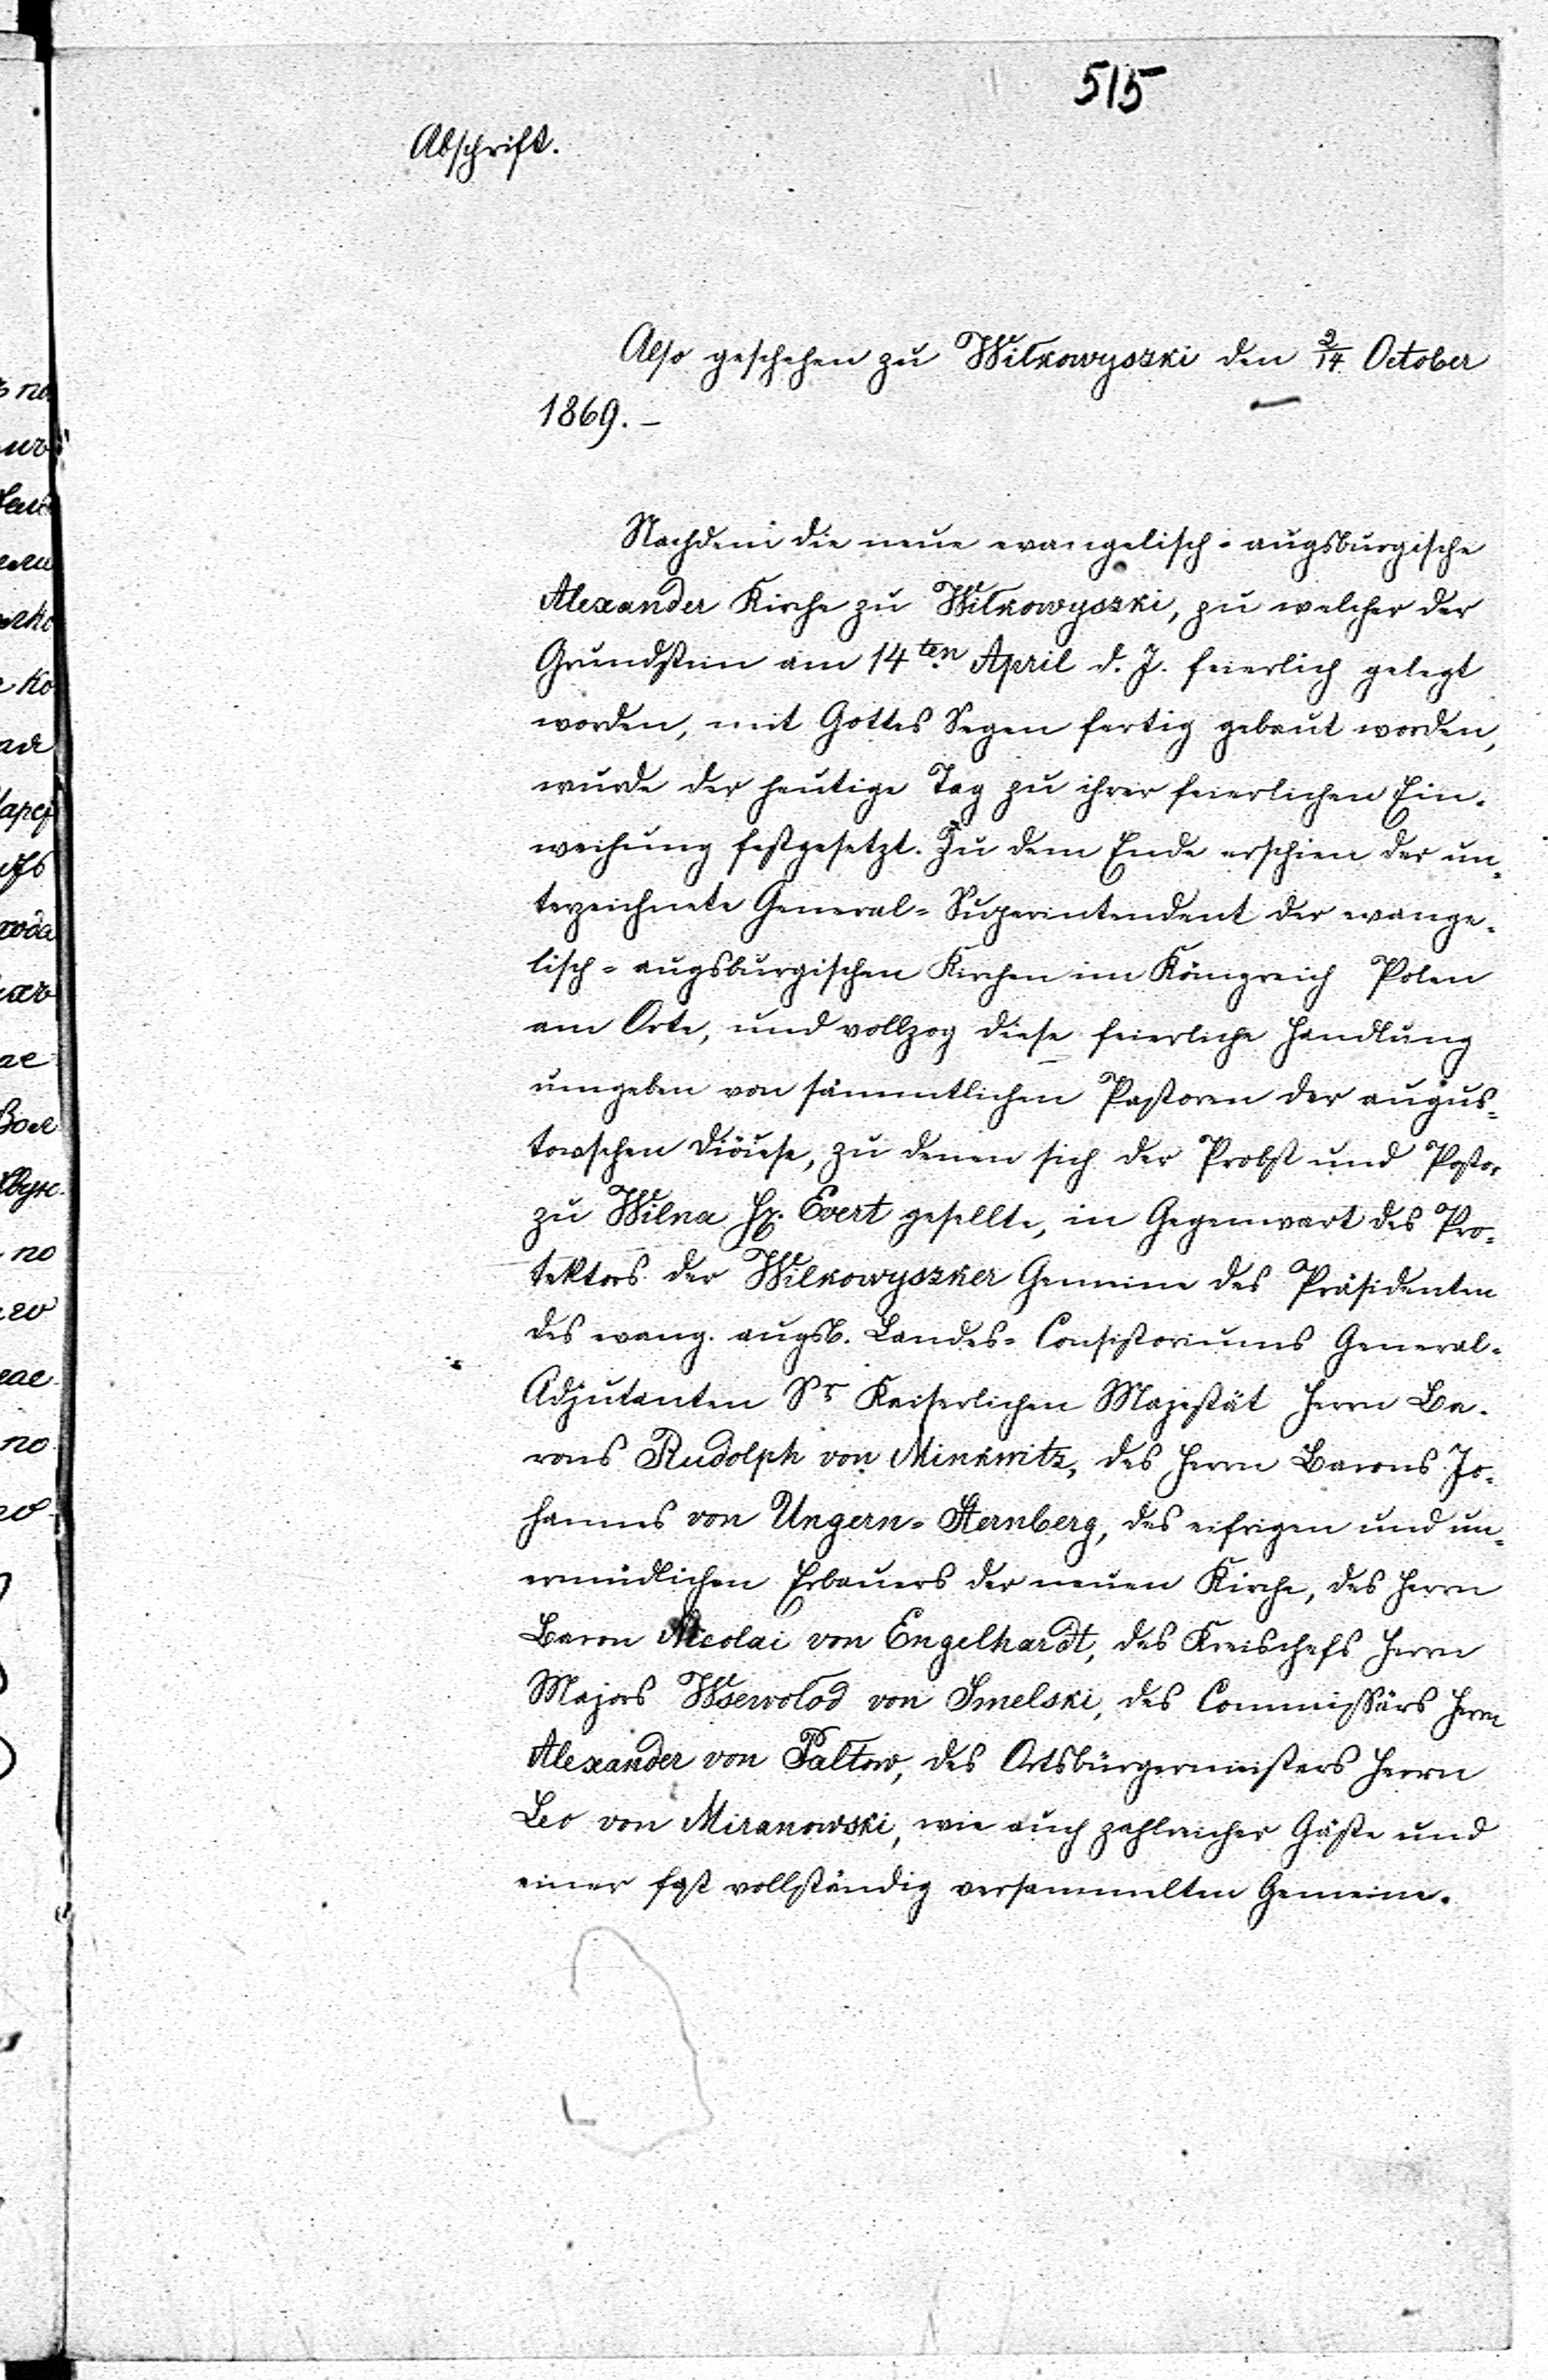 515
Abschrift.
Also geschehen zu Wilkowyszki den 2/14 October
1869. –
Nachdem die neue evangelisch-augsburgische
Alexander Kirche zu Wilkowyszki, zu welcher der
Grundstein am 14ten April d. J. feierlich gelegt
worden, mit Gottes Segen fertig gebaut worden,
wurde der heutige Tag zu ihrer feierlichen Ein-
weihung festgesetzt. Zu dem Ende erschien der un-
terzeichnete General-Superintendent der evange-
lisch-augsburgischen Kirchen im Königreich Polen
am Orte, und vollzog diese feierliche Handlung
umgeben von sämmtlichen Pastoren der augus-
towschen Diöcese, zu denen sich der Probst und Pastor
zu Wilna H. Evert gesellte, in Gegenwart des Pro-
tektors der Wilkowyszker Gemeine des Präsidenten
des evang. augsb. Landes-Consistoriums General-
Adjutanten Sr Kaiserlichen Majestät Herrn Ba-
rons Rudolph von Minkwitz, des Herrn Barons Jo-
hannes von Ungern-Sternberg, des eifrigen und un-
ermüdlichen Erbauers der neuen Kirche, des Herrn
Baron Nicolai von Engelhardt, des Kreischefs Herrn
Majors Wsewolod von Smelski, des Commissärs Herrn
Alexander von Paltow, des Ortsbürgermeisters Herrn
Leo von Miranowski, wie auch zahlreicher Gäste und
einer fast vollständig versammelten Gemeine.